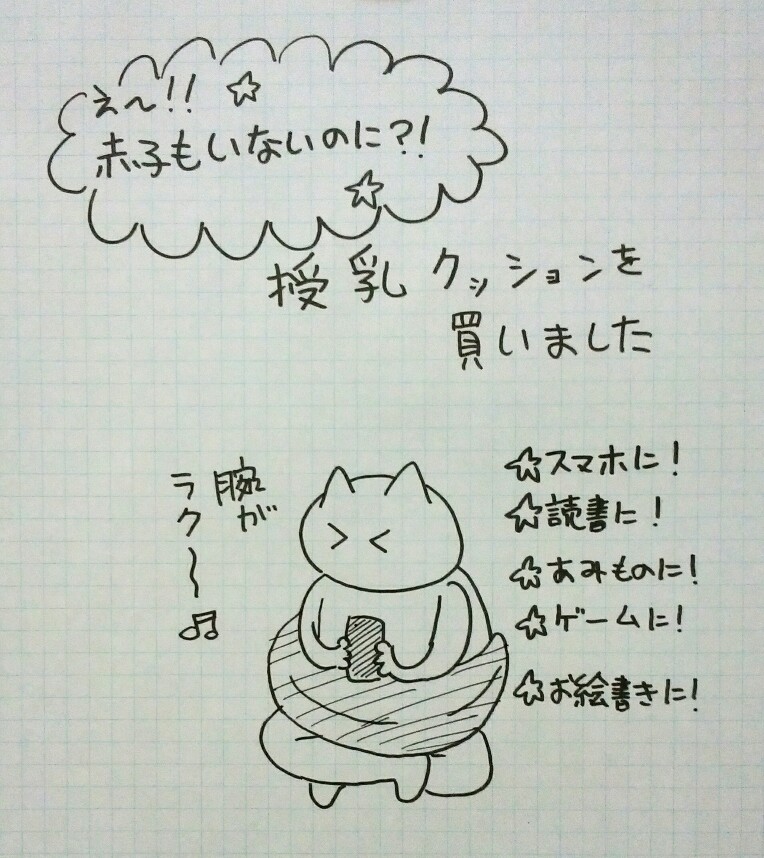 え〜!!☆
赤子もいないのに?!
☆
授乳クッションを
買いました
腕が
ラク〜♫
☆スマホに!
☆読書に!
☆あみものに!
☆ゲームに!
☆お絵書きに!